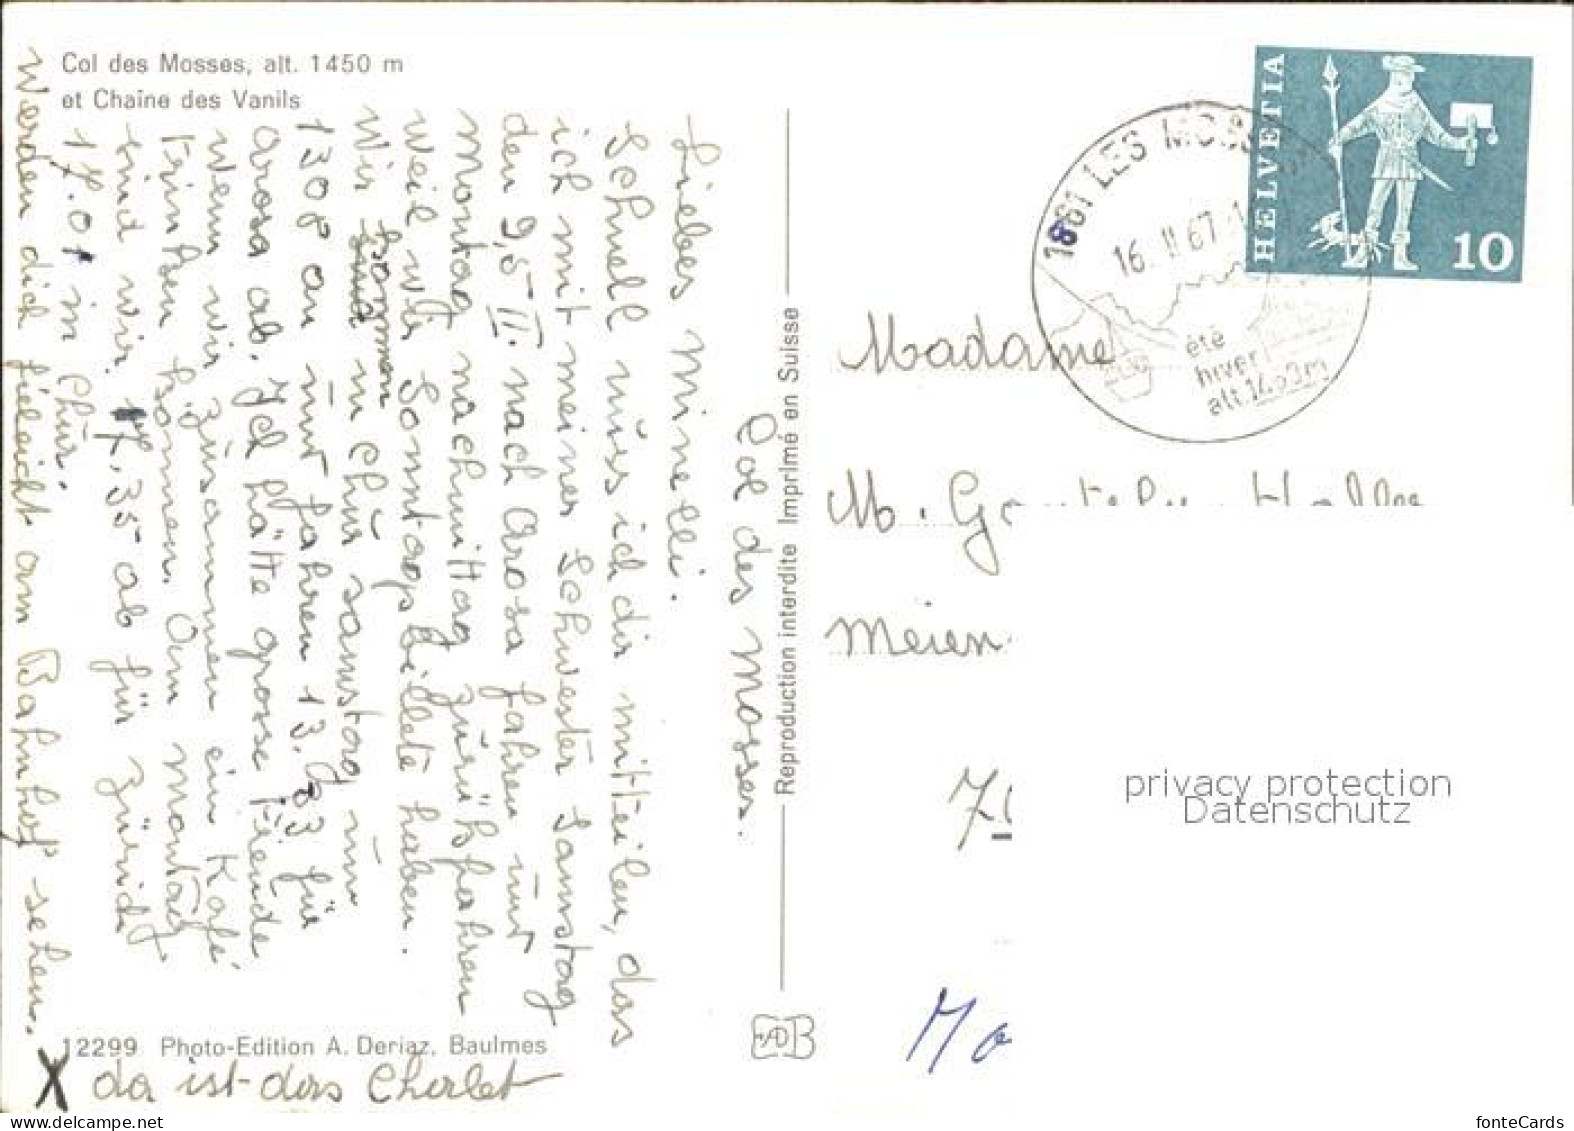 Col des Mosses, alt. 1450 m
et Chaîne des Vanils
Col des Mosses.
Liebes Minelli.
Schnell müss ich dir mitteilen, das
ich mit meiner Schwester Samstag
den 9,5 II. nach Arosa fahren und
Montag nachmittag zürükfahren
weil wir Sonntagsbillete haben.
Wir kommen in Chür samstag um
1308 an und fahren 13. 33 für
Arosa ab. Ich hätte grosse Freude
wenn wir züsammen ein Kafé
trinken können. Am Montag
sind wir. 17.35 ab für zürich
17.01 in Chür.
werden dich fieleicht am Bahnhof sehen.
12299 Photo-Edition A. Deriaz, Baulmes
X da ist das Chalet
Reproduction interdite Imprimé en Suisse
1861 LES MOSS
16. II 67
été
hiver
alt. 1450m
HELVETIA
10
Madame
M.
Meien
privacy protection
Datenschutz
fonteCards